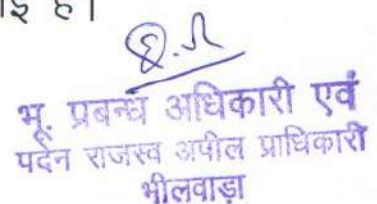 है।
भू. प्रबन्ध अधिकारी एवं
पदेन राजस्व अपील प्राधिकारी
भीलवाड़ा